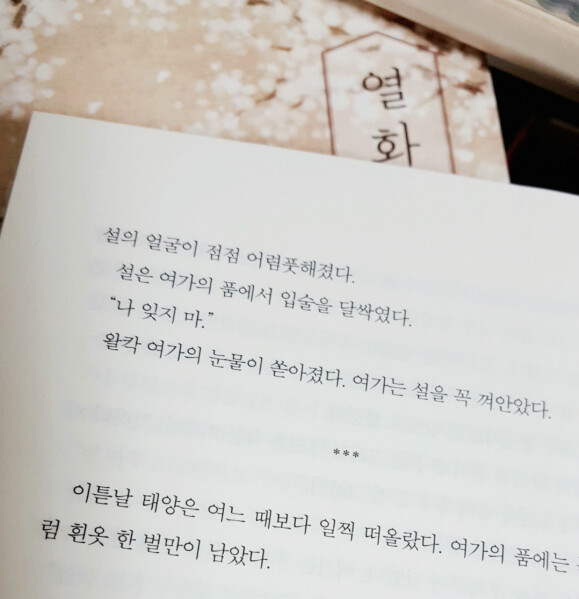 열화
설의 얼굴이 점점 어렴풋해졌다.
설은 여가의 품에서 입술을 달싹였다.
“나 잊지 마.”
왈칵 여가의 눈물이 쏟아졌다. 여가는 설을 꼭 껴안았다.
***
이튿날 태양은 여느 때보다 일찍 떠올랐다. 여가의 품에는
럼 흰옷 한 벌만이 남았다.